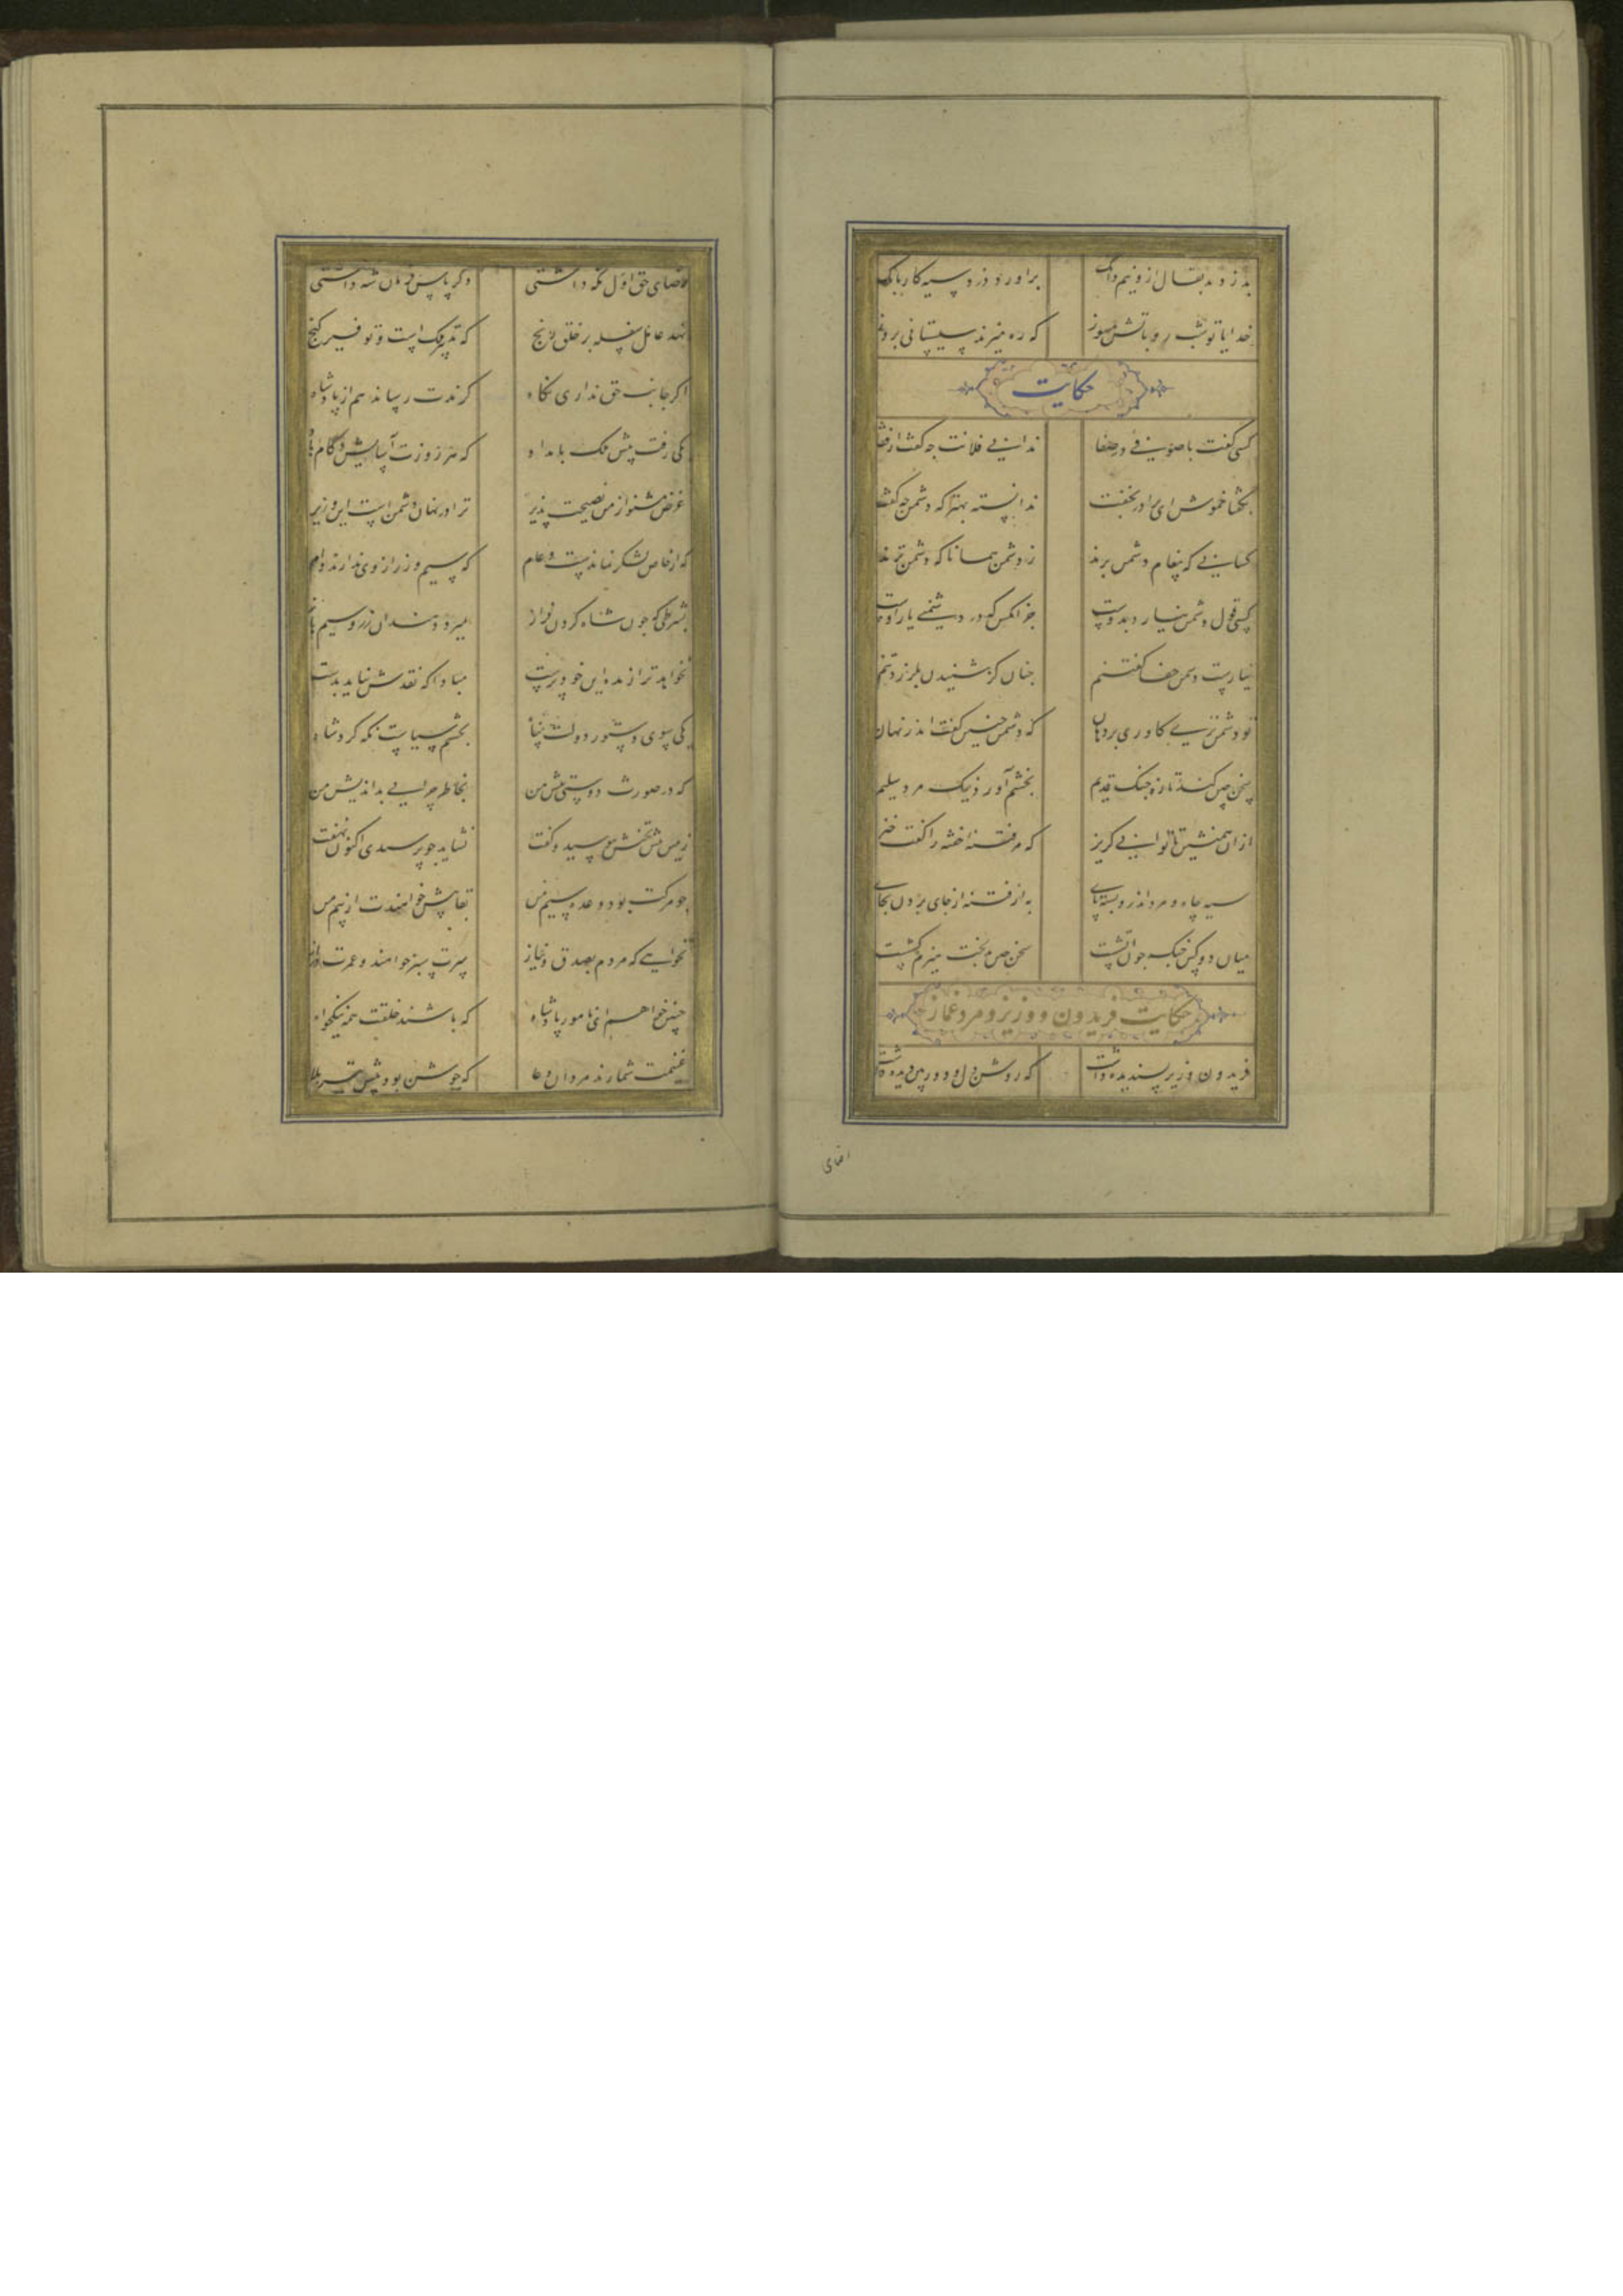 بدزدد بقال ازو نیم دانگ برآورد دزد سیه کار بانگ
خدایا تو شب رو بآتش مسوز که ره میزند سیستانی بروز
حکایت
کسی گفت با صوفیی در صفا ندانی فلانت جه گفت از قفا
بگفتا خموش ای برادر بخفت ندانسته بهتر که دشمن چه گفت
کسانی که پیغام دشمن برند ز دشمن همانا که دشمن ترند
کسی قول دشمن نیارد بدوست جز آنکس که در دشمنی یار اوست
نیارست دشمن جفا گفتنم جنان کز شنیدن بلرزد تنم
تو دشمن تری کاوری بر دهان که دشمن جنین گفت اندر نهان
سخن چین کند تازه جنک قدیم بخشم آورد نیک مرد سلیم
ازان همنشین تا توانی گریز که مر فتنه خفته را گفت خیز
سیه چاه و مرد اندرو بسته پای به از فتنه از جای بردن بجای
میان دو کس جنک جون آتشست سخن چین بدبخت هیزم کشست
حکایت فریدون و وزیر و مرد غماز
فریدون وزیر پسندیده داشت که روشن دل و دوربین دیده داشت
رضای
رضای حق اول نکه داشتی دکر پاس فرمان شه داشتی
نهد عامل سفله بر خلق رنج که تدبیر ملک است و توفیر کنج
اکر جانب حق نداری نکاه کزندت رساند هم از پادشاه
یکی رفت پیش ملک بامداد که هر روزت آسایش و کام باد
غرض مشنو از من نصیحت پذیر ترا در نهان دشمن است این وزیر
که از خاص لشکر نماندست و عام که سیم و زر از وی ندارند وام
بشرطی که جون شاه کردن فراز بمیرد دهند آن زر و سیم باز
نخواهد ترا زنده این خودپرست مبادا که نقدش نیاید بدست
یکی سوی دستور دولت پناه بخشم سیاست نکه کرد شاه
که در صورت دوستی پیش من بخاطر چرایی بداندیش من
زمین پیش تختش ببوسید و گفت نشاید جو پرسیدی اکنون نهفت
جو مرکت بود وعده سیم من بقا بیش خواهندت از بیم من
نخواهی که مردم بصدق و نیاز سرت سبز خواهند و عمرت دراز
چنین خواهم ای نامور پادشاه که باشند خلقت همه نیکخواه
غنیمت شمارند مردان دعا که جوشن بود پیش تیر بلا